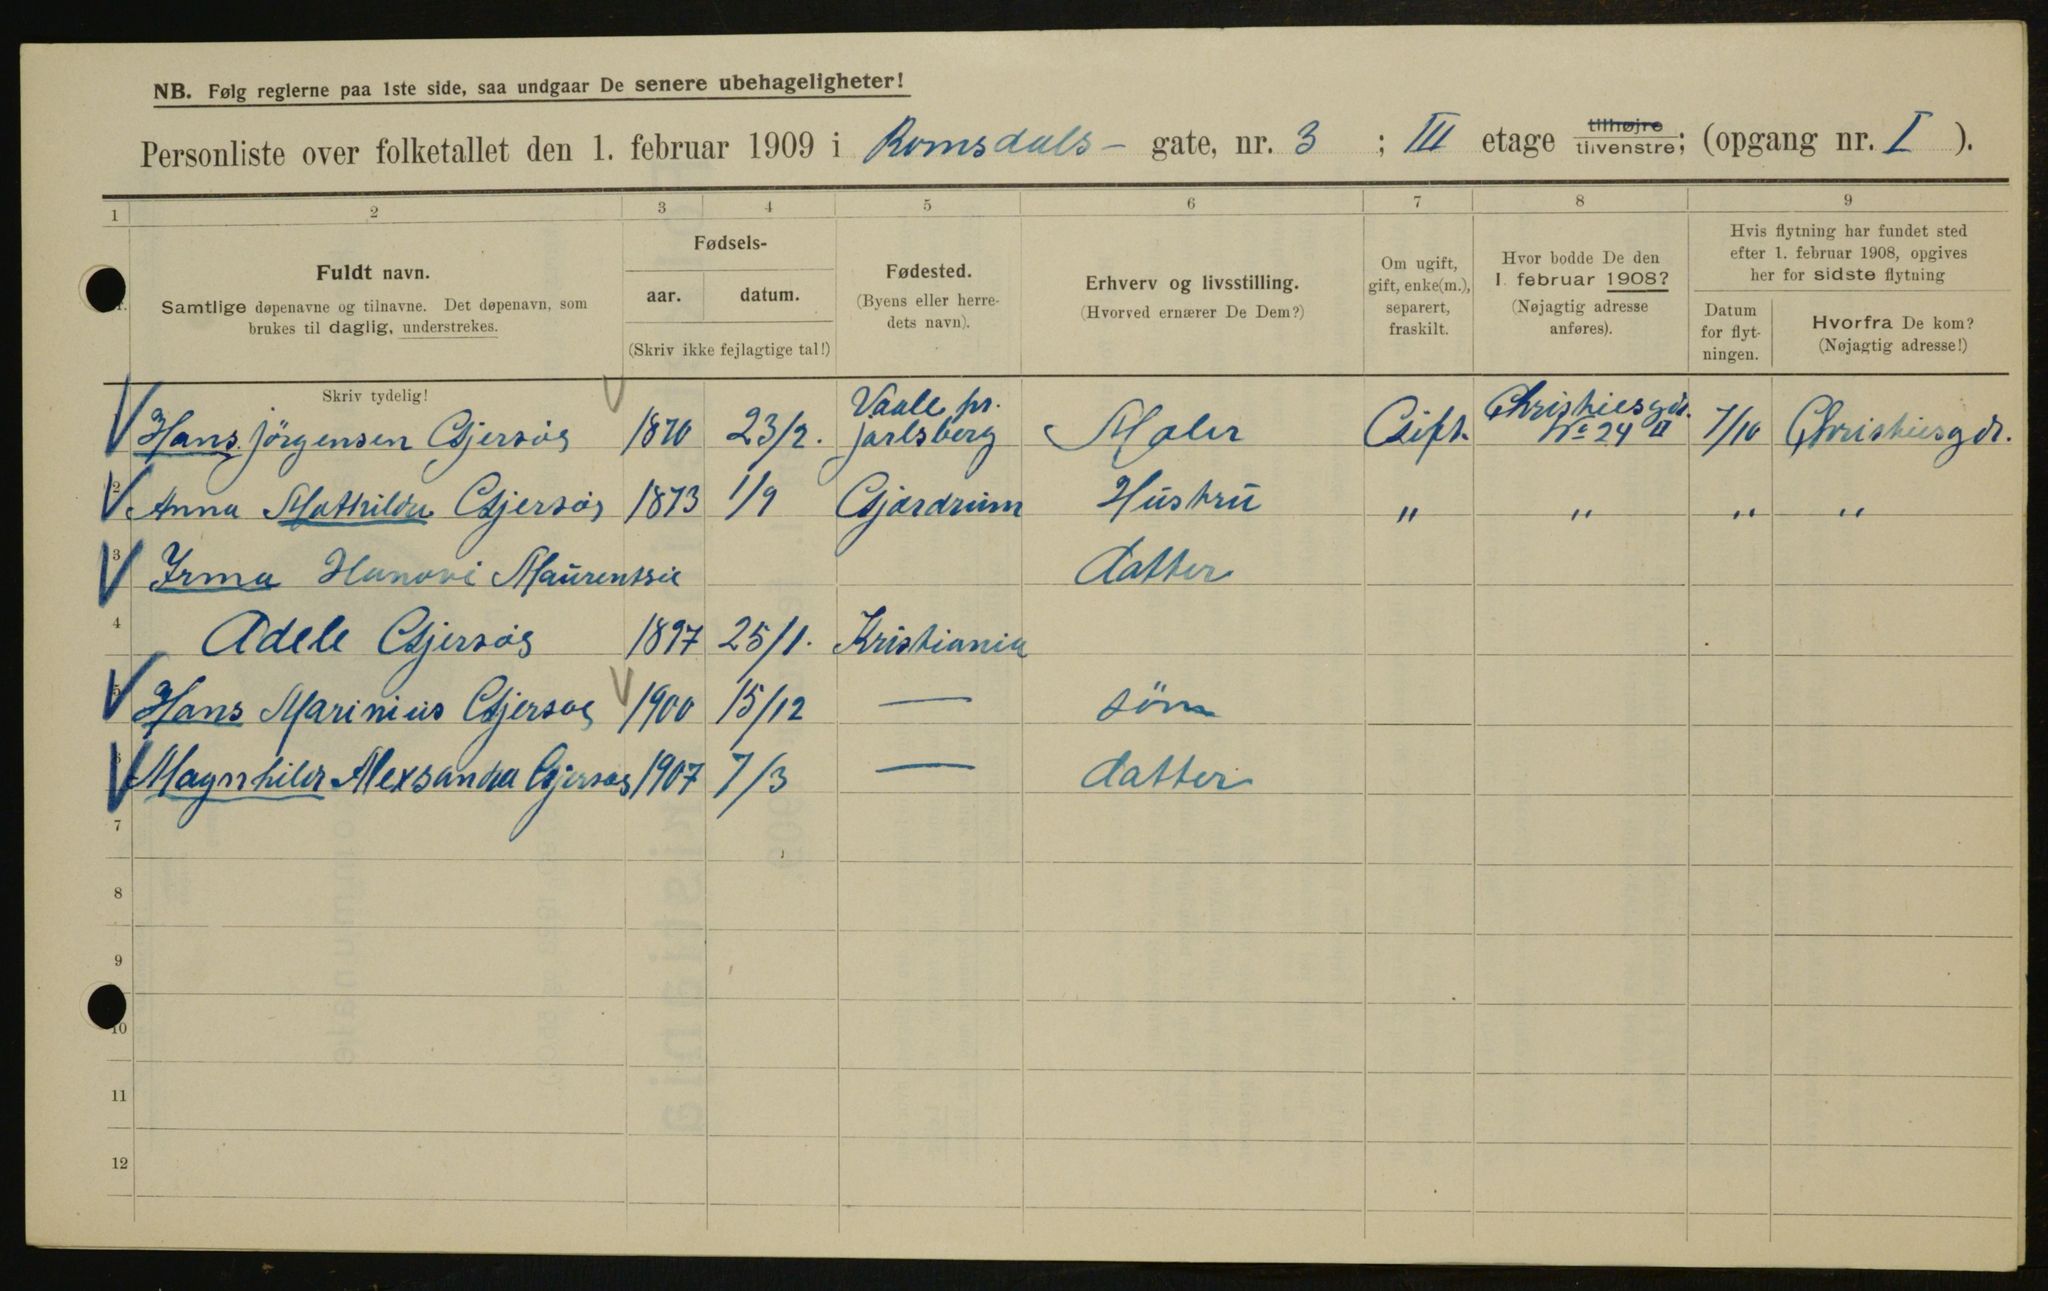 NB. Følg reglerne paa 1ste side, saa undgaar De senere ubehageligheter!
Personliste over folketallet den 1. februar 1909 i Romsdals- gate, nr. 3 ; III etage tilhøjre tilvenstre; (opgang nr. I ).
1 2 3 4 5 6 7 8 9
Fuldt navn.
Samtlige døpenavne og tilnavne. Det døpenavn, som
brukes til daglig, understrekes.
Fødsels-
aar. datum.
(Skriv ikke fejlagtige tal!)
Fødested.
(Byens eller herre-
dets navn).
Erhverv og livsstilling.
(Hvorved ernærer De Dem?)
Om ugift,
gift, enke(m.),
separert,
fraskilt.
Hvor bodde De den
1. februar 1908?
(Nøjagtig adresse
anføres).
Hvis flytning har fundet sted
efter 1. februar 1908, opgives
her for sidste flytning
Datum
for flyt-
ningen.
Hvorfra De kom?
(Nøjagtig adresse!)
Skriv tydelig!
Vaale pr. Christiesgd.
Hans Jörgensen Gjersøs 1870 23/2. Jarlsberg Maler Gift. No 24 II 7/10 Christiesgd.
2 Anna Mathilde Gjersøs 1873 1/9 Gjærdrum Hustru " " " "
3 Irma Hanovi datter
4 Adele Gjersøs 1897 25/1. Kristiania
5 Hans Marinius Gjersøs 1900 15/12 — sön
6 Magnhild Alexsandra Gjersøs 1907 7/3 — datter
7
8
9
10
11
12